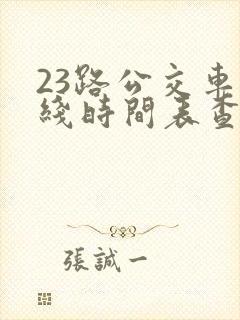 23路公交車
綫時間表查
張誠一